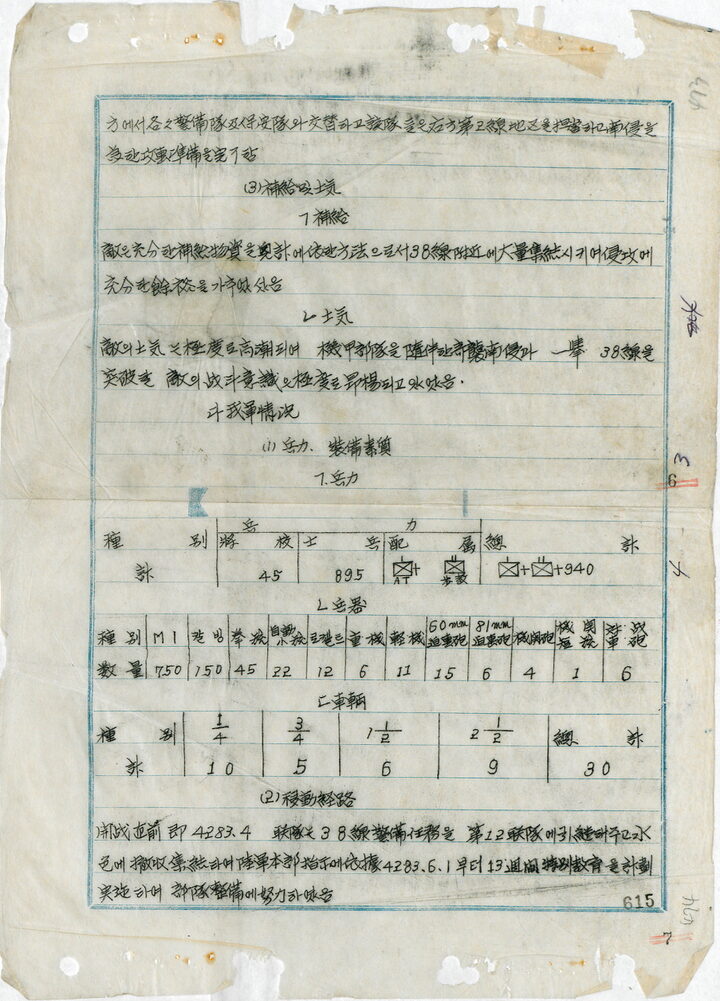 方에서 各々 警備隊 및 保安隊와 交替하고 該隊들은 右方 第2線 地区을 担当하고 南侵을
為한 攻撃準備을 完了함
(3) 補給 및 士気
ㄱ 補給
敵은 充分한 補給物資을 에 依한 方法으로서 38線 附近에 大量集結시키여 侵攻에
充分한 餘裕을 가추었었음
ㄴ 士気
敵의 士気는 極度로 高潮되여 機甲部隊을 随伴한 奇襲南侵과 一擧 38線을
突破한 敵의 战斗意識은 極度로 昻楊되고 있었음.
라 我軍情況
(1) 兵力. 裝備素質
ㄱ. 兵力
種 別 兵 力
將 校 士 兵 配 属 總 計
計 45 895 + AT + +940
ㄴ 兵器
種 別 M1 칼빙 拳銃 自動小銃 로켙트 重機 軽機 60mm迫撃砲 81mm迫撃砲 機関砲 機関短銃 対战車砲
数量 750 150 45 22 12 6 11 15 6 4 1 6
ㄷ 車輌
種 別 1/4 3/4 1 1/2 2 1/2 總 計
計 10 5 6 9 30
(2) 移動経路
開战直前 即 4283.4 联隊는 38線 警備任務을 第12联隊에 引継해주고 水
色에 撤收集結하여 陸軍本部 指示에 依據 4283.6.1부터 13週間 特別教育을 計劃
実施하며 部隊整備에 努力하였음
615
6
7